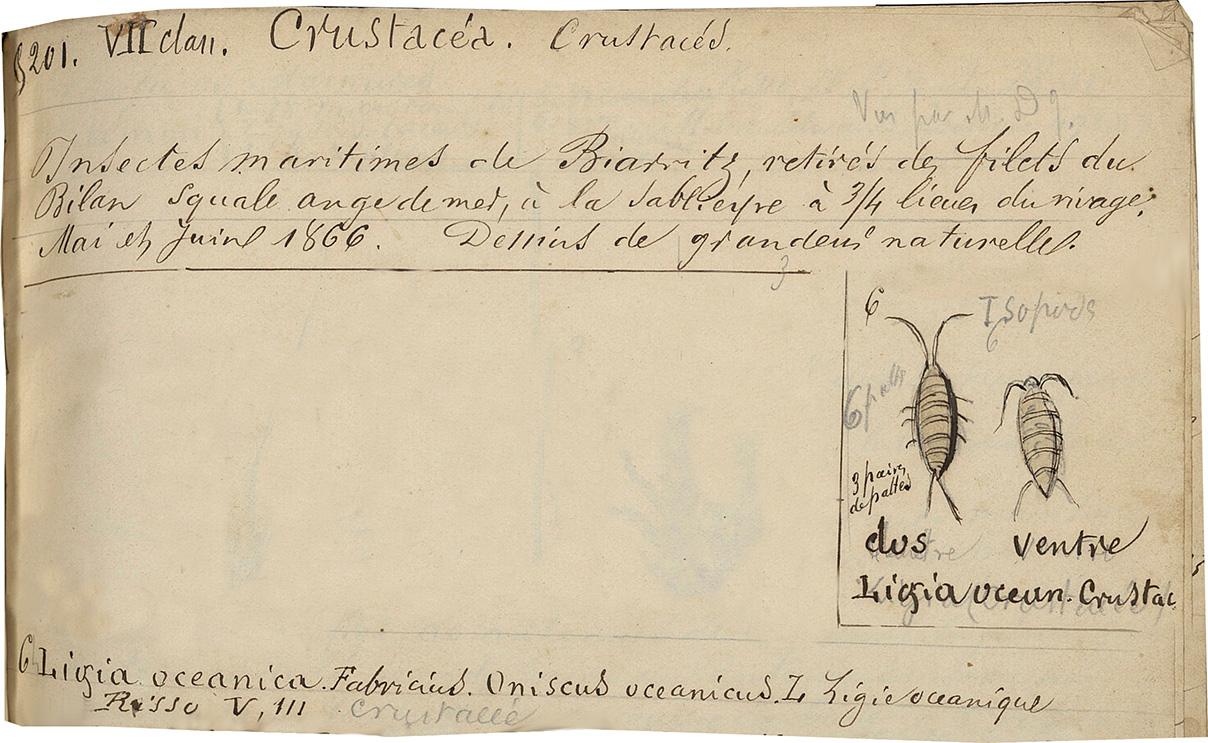 §201. VII class. Crustacéa. Crustacés.
Vus par M. D g.
Insectes maritimes de Biarritz, retirés de filets du
Bilan squale ange de mer, à la Sablieyre à 3/4 lieues du rivage,
Mai et Juin 1866. Dessins de grandeur naturelle.
3
6 Isopods
6
6 patts
3 paires
de pattes
dos ventre
Ligia ocean. Crustac
6 Ligia oceanica. Fabricius. Oniscus oceanicus. L Ligie oceanique
Risso V, 111 Crustallé